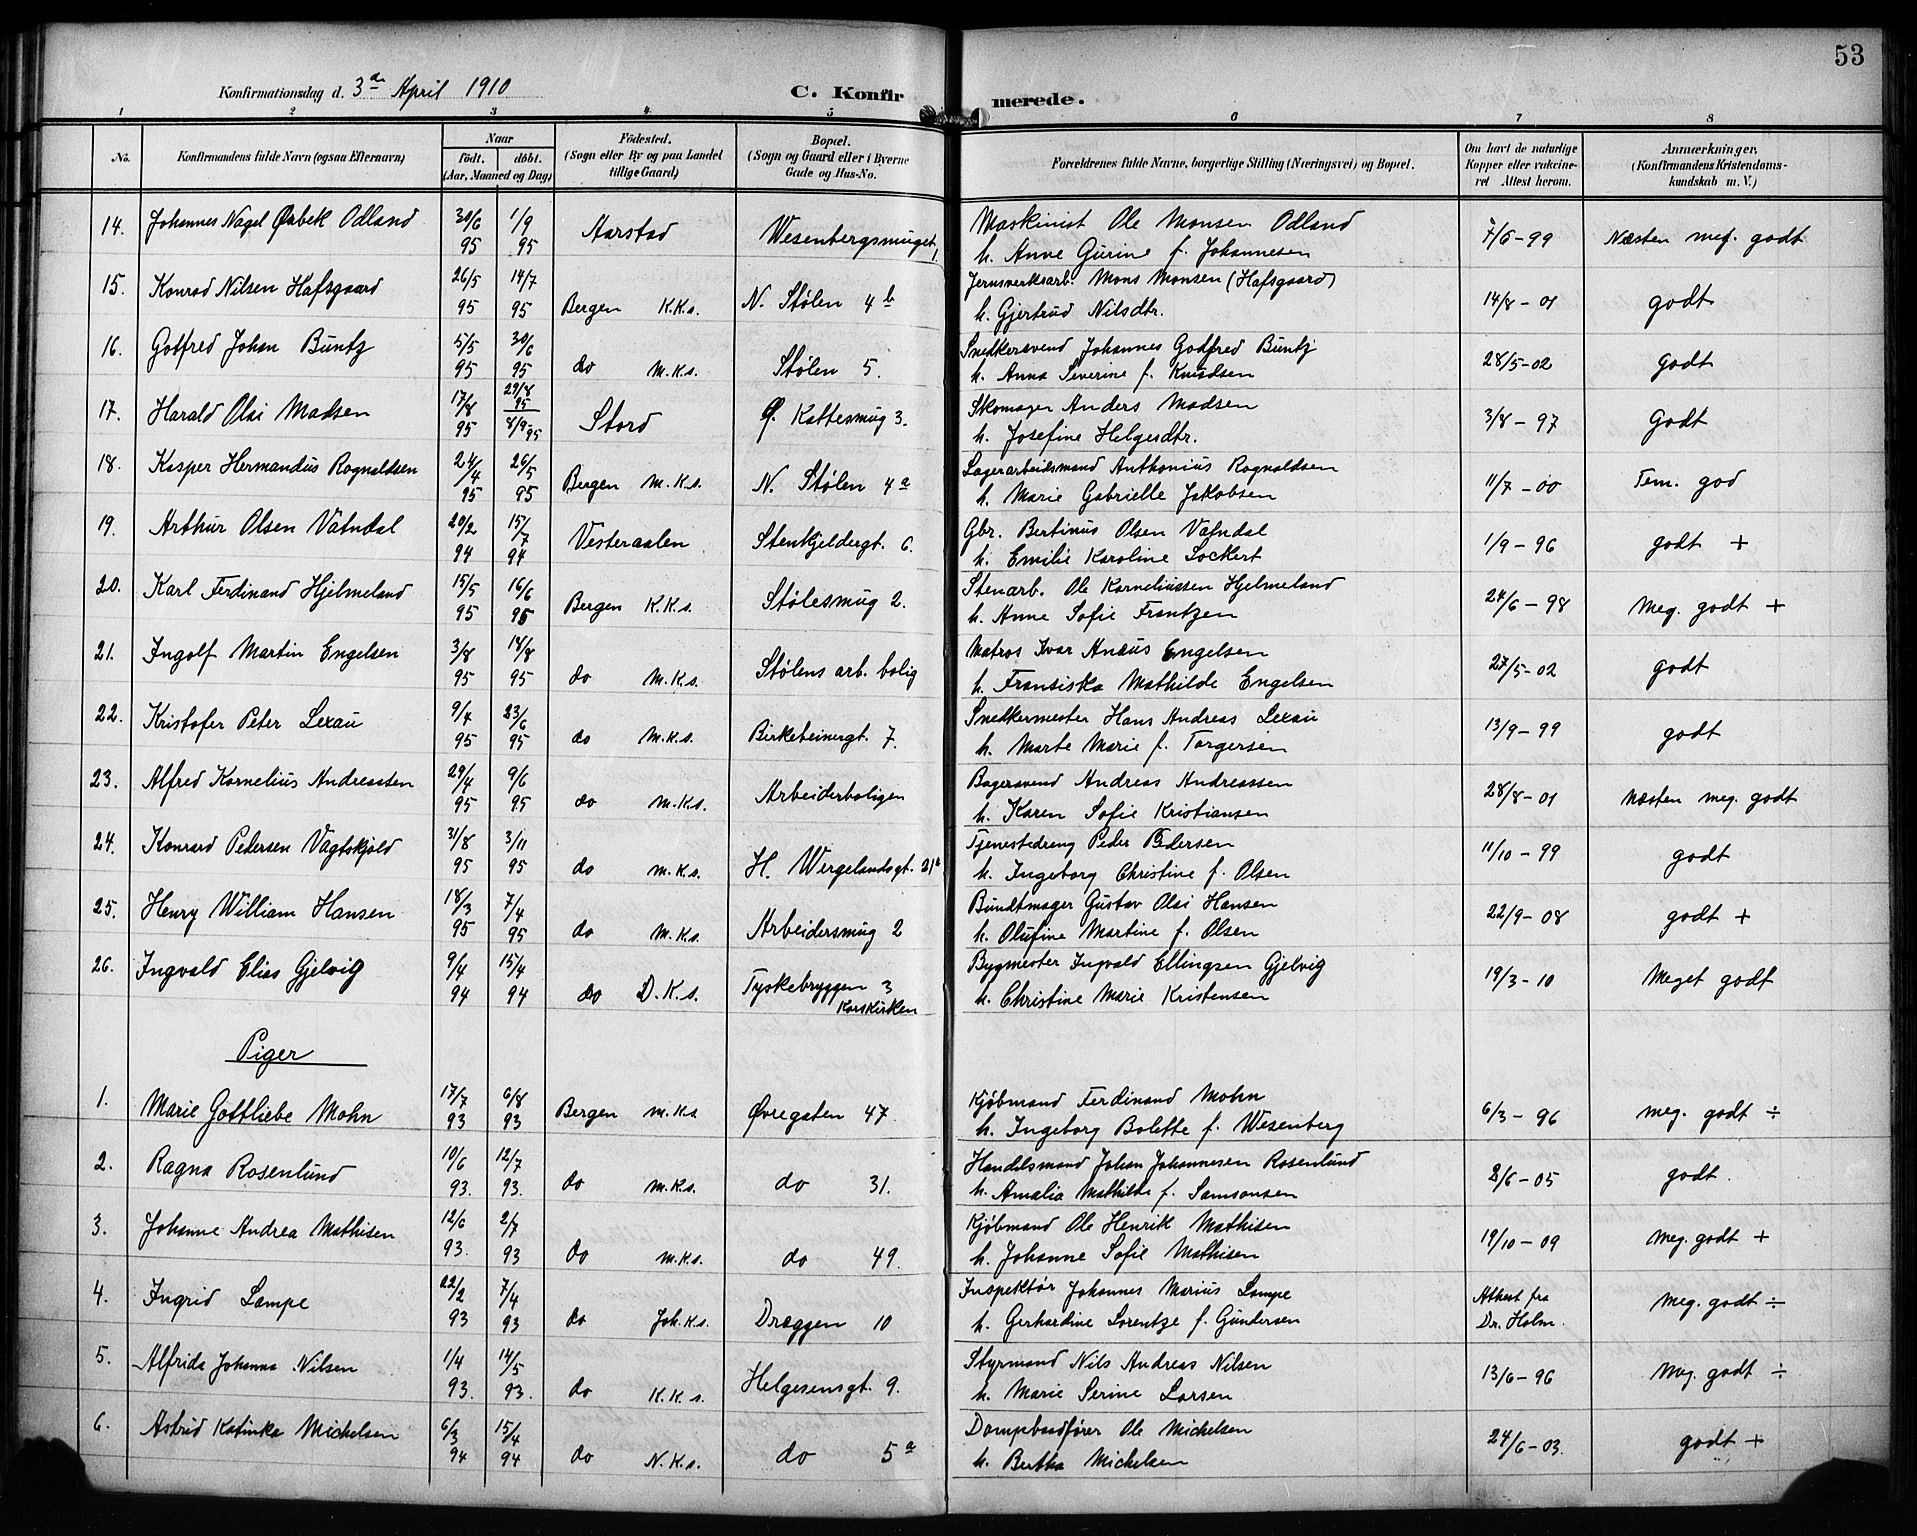 53
Konfirmationsdag d. 3die April 1910
C. Konfirmerede.
1 2 3 4 5 6 7 8
No. Konfirmandens fulde Navn (ogsaa Efternavn) Naar født. døbt. (Aar, Maaned og Dag) Fødested. (Sogn eller By og paa Landet tillige Gaard) Bopæl. (Sogn og Gaard eller i Byerne Gade og Hus-No. Forældrenes fulde Navne, borgerlige Stilling (Næringsvei) og Bopæl. Om havt de naturlige Kopper eller vaccineret Attest herom. Anmærkninger. (Konfirmandens Kristendomskundskab m. V.)
14. Johannes Nagel Ørbek Odland 30/6 1/9 Maskinist Ole Monsen Odland
95 95 Aarstad Wesenbergsmuget, h. Anne Gurine f. Johannesen 7/6-99 Næsten meg. godt
15. Konrad Nilsen Hafsgaard 26/5 14/7 Jernverksarb. Mons Monsen (Hafsgaard)
95 95 Bergen K.K.s. N. Stølen 4b h. Gjertrud Nilsdtr. 14/8-01 godt
16. Gotfred Johan Buntz 5/5 30/6 Snedkersvend Johannes Godfred Buntz
95 95 do M.K.s. Stølen 5. h. Anna Severine f. Knudsen 28/5-02 godt
17. Harald Olai Madsen 17/8 29/8 95 Skomager Anders Madsen
95 8/9 95 Stord Ø. Kattesmug 3. h. Josefine Helgesdtr. 3/8-97 Godt
18. Kasper Hermandus Rognaldsen 24/4 26/5 Lagerarbeidsmand Anthonius Rognaldsen
95 95 Bergen M.K.s. N. Stølen 4a h. Marie Gabrielle Jakobsen 11/7-00 Tem. god
19. Arthur Olsen Vatndal 20/2 15/7 Gbr. Bertinus Olsen Vatndal
94 94 Vesteraalen Stenkjeldergt. 6. h. Emilie Karoline Lockert 1/9-96 godt +
20. Karl Ferdinand Hjelmeland 15/5 16/6 Stenarb. Ole Korneliussen Hjelmeland
95 95 Bergen K.K.s. Stølesmug 2. h. Anne Sofie Frantzen 24/6-98 Meg. godt +
21. Ingolf Martin Engelsen 3/8 14/8 Matros Ivar Anæus Engelsen
95 95 do M.K.s. Stølens arb. bolig h. Fransiska Mathilde Engelsen 27/5-02 godt
22. Kristofer Peter Lexau 9/4 23/6 Snedkermester Hans Andreas Lexau
95 95 do M.K.s. Birkebeinergt. 7. h. Marte Marie f. Torgersen 13/9-99 godt
23. Alfred Kornelius Andreassen 29/4 9/6 Bagersvend Andreas Andreassen
95 95 do M.K.s. Arbeiderboligen h. Karen Sofie Kristiansen 28/8-01 Næsten meg. godt
24. Konrad Pedersen Vagtskjold 31/8 3/11 Tjenestedreng Peder Pedersen
95 95 do M.K.s. H. Wergelandsgt. 21a h. Ingeborg Christine f. Olsen 11/10-99 godt
25. Henry William Hansen 18/3 7/4 Bundtmager Gustav Olai Hansen
95 95 do M.K.s. Arbeidersmug 2 h. Olufine Martine f. Olsen 22/9-08 godt +
26. Ingvald Elias Gjelvig 9/4 15/4 Bygmester Ingvald Ellingsen Gjelvig
94 94 do D.K.s. Tyskebryggen 3 Korskirken h. Christine Marie Kristensen 19/3-10 Meget godt
Piger
1. Marie Gottliebe Mohn 17/7 6/8 Kjøbmand Ferdinand Mohn
93 93 Bergen M.K.s Øvregaten 47 h. Ingeborg Bolette f. Wesenberg 6/3-96 meg. godt ÷
2. Ragna Rosenlund 10/6 12/7 Handelsmand Johan Johannesen Rosenlund
93. 93. do M.K.s. do 31. h. Amalia Mathilde f. Samsonsen 2/6-05 godt.
3. Johanne Andrea Mathisen 12/6 2/7 Kjøbmand Ole Henrik Mathisen
93. 93 do M.K.s. do 49. h. Johanne Sofie Mathisen 19/10-09 Meg. godt +
4. Ingrid Lampe 22/2 7/4 Inspektør Johannes Marius Lampe Attest fra
93 93 do Joh.K.s. Dræggen 10 h. Gerhardine Lorentze f. Gundersen Dr. Holm. Meg. godt ÷
5. Alfrida Johanna Nilsen 1/4 14/5 Styrmand Nils Andreas Nilsen
93. 93. do K.K.s. Helgesensgt. 9. h. Marie Serine Larsen 13/6-96 Meg. godt ÷
6. Astrid Katinka Michelsen 6/3 15/4 Dampbaadfører Ole Michelsen
94 94 do N.K.s. do 5a h. Bertha Michelsen 24/6-03. godt +